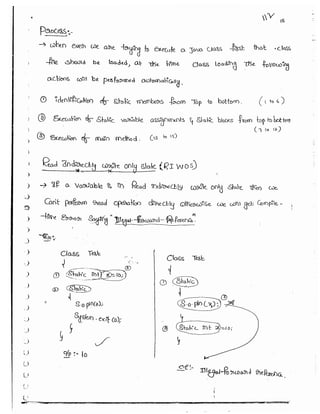 18
Process:-
→ when ever we are trying to execute a Java class first that .class
file should be loaded, at the time class loading the following
actions will be performed automatically.
① identification of static members from top to bottom. (1 to 6)
② Execution of static variable assignments & static blocks from top to bottom
(7 to 12)
③ Execution of main method. (13 to 15)
Read Indirectly write only state (RIWOS)
→ If a variable is in Read Indirectly write only state then we
can't perform read operation directly otherwise we will get Compile-
-time Error saying "Illegal forward reference"
Ex:
class Test
{
① static int x=10;
② static
{
S.o.pln(x);
System.exit(0);
}
}
o/p :- 10
class Test
{
① static
{
S.o.pln(x);
}
② static int x=10;
}
CE:- Illegal forward reference.